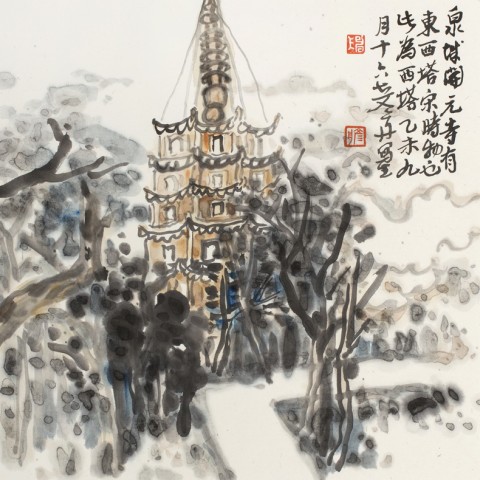 泉城開元寺有
東西塔宋時物也
此為西塔乙未九
月十六